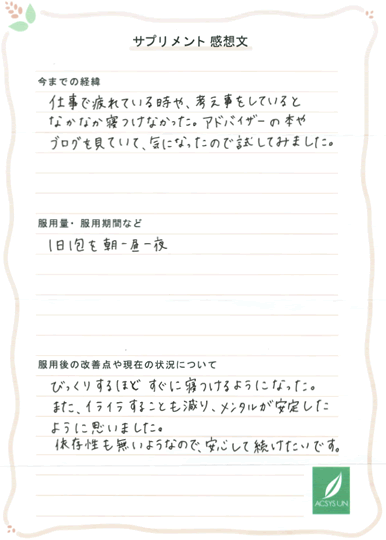 サプリメント 感想文
今までの経緯
仕事で疲れている時や、考え事をしていると
なかなか寝つけなかった。アドバイザーの本や
ブログを見ていて、気になったので試してみました。
服用量・服用期間など
1日1包を朝−昼−夜
服用後の改善点や現在の状況について
びっくりするほど すぐに寝つけるようになった。
また、イライラすることも減り、メンタルが安定した
ように思いました。
依存性も無いようなので、安心して続けたいです。
ACSYS UN